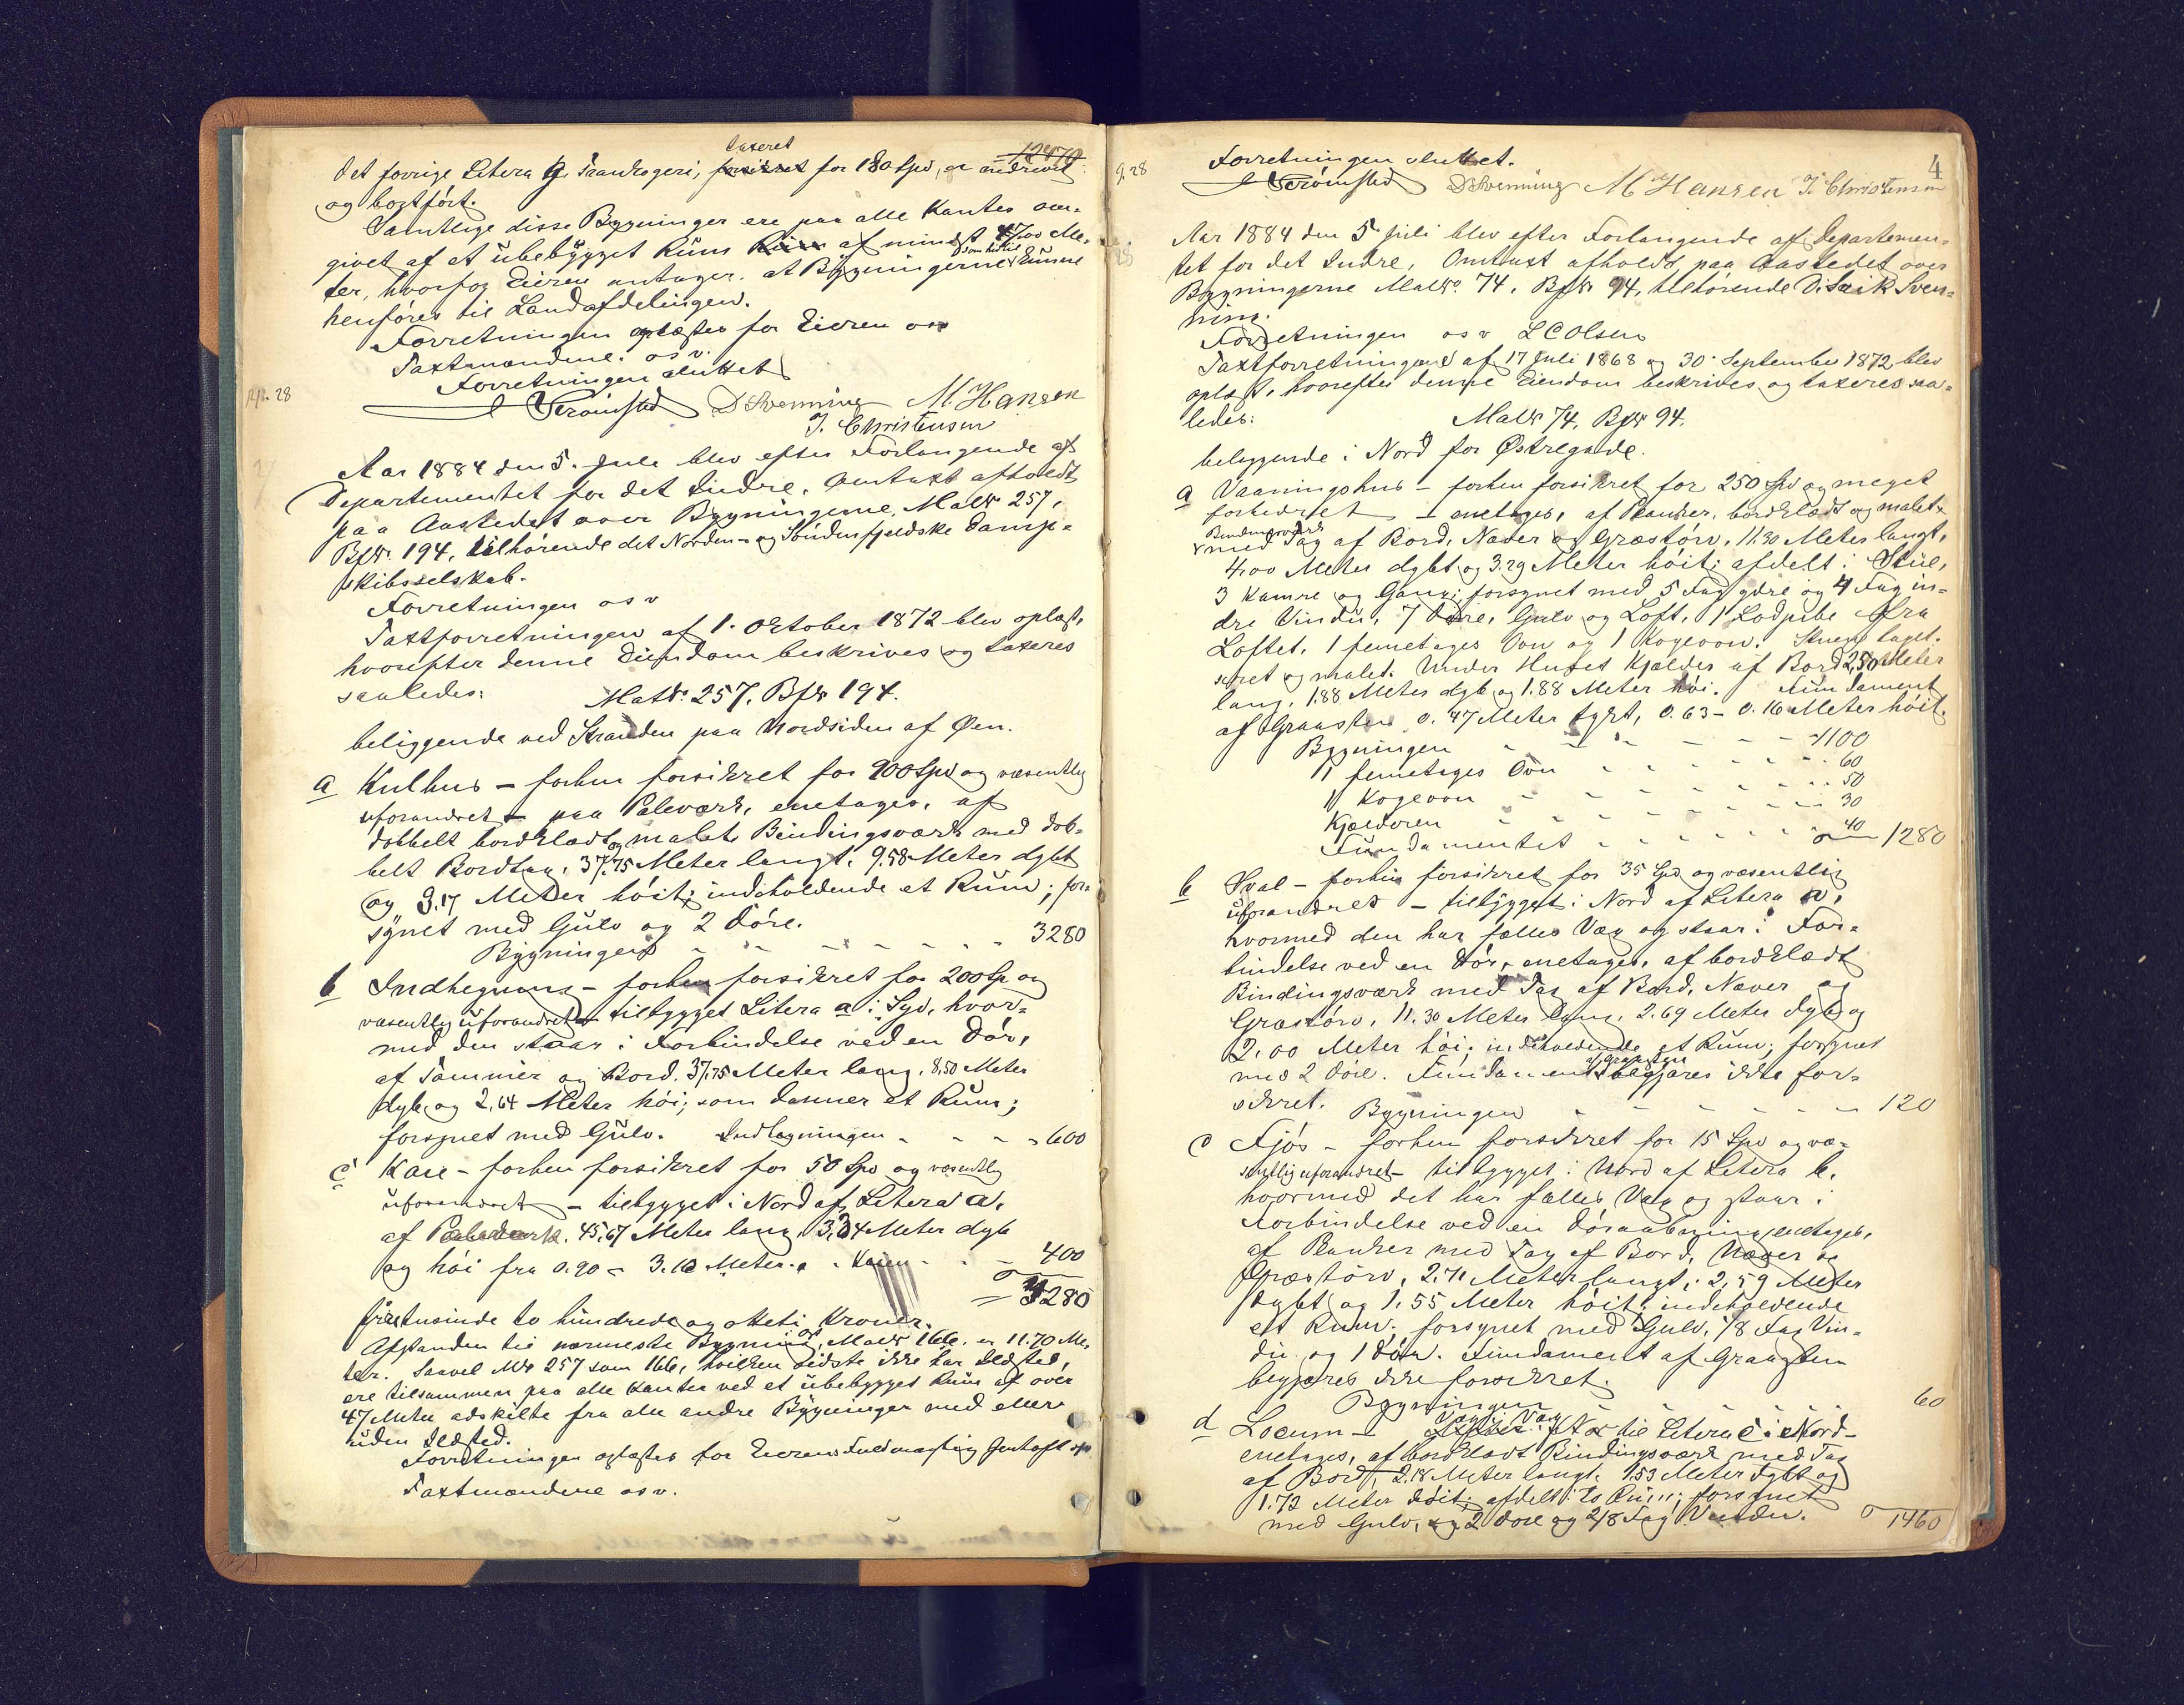 12470
taxeret
det forrige Litera g, Trandrogeri, forsikret for 180 Spd, er nedrevet
og bortført.
Samtlige disse Bygninger ere paa alle Kanter om-
givet af et ubebygget Rum af mindst 47.00 Me-
som hidtil
ter, hvorfor Eieren antager, at Bygningerne kunne
henføres til Landafdelingen.
Forretningen oplæstes for Eieren og
Taxtmændene. osv.
Forretningen sluttet
28
Strømsted D Svenning M Hansen
J. Christensen
Aar 1884 den 5. Juli blev efter Forlangende af
Departementet for det Indre, Omtaxt afholdt
paa Aastedet over Bygningerne, Matr 257,
Bfr. 194, tilhørende det Norden- og Søndenfjeldske Damp-
skibsselskab.
Forretningen osv
Taxtforretningen af 1. Oktober 1872 blev oplæst,
hvorefter denne Eiendom beskrives og taxeres
saaledes:
Matr. 257, Bfr 194.
beliggende ved Stranden paa Nordsiden af Øen.
a Kulhus - forhen forsikret for 900 Spd og væsentlig
uforandret - paa Pæleværk, enetages, af
dobbelt bordklædt og malet Bindingsværk med dob-
belt Bordtag, 37.75 Meter langt, 9.58 Meter dybt
og 3.17 Meter høit; indeholdende et Rum; for-
synet med Gulv og 2 Døre.
Bygningen - - - - - - 3280
b Indhegning - forhen forsikret for 200 Sp og
væsentlig uforandret - tilbygget Litera a i Syd, hvor-
med den staar i Forbindelse ved en Dør,
af Tømmer og Bord. 37.75 Meter lang, 8.50 Meter
dyb og 2.64 Meter høi; som danner et Rum;
forsynet med Gulv. Indhegningen - - - - 600
c Kaie - forhen forsikret for 50 Spd og væsentlig
uforandret - tilbygget i Nord af Litera a.
af Pæleværk. 45.67 Meter lang, 3.34 Meter dyb
og høi fra 0.90 - 3.10 Meter. Kaien - - - 400
4280
firetusinde to hundrede og otteti Kroner.
Afstanden til nærmeste Bygning, Matr 166, er 11.70 Me-
ter. Saavel Mr 257 som 166, hvilken sidste ikke har Ildsted,
ere tilsammen paa alle Kanter ved et ubebygget Rum af over
47 Meter adskilte fra alle andre Bygninger med eller
uden Ildsted.
Forretningen oplæstes for Eierens Fuldmægtig
Taxtmændene osv.
4
28
Forretningen sluttet.
Strømsted D Svenning M Hansen J. Christensen
Aar 1884 den 5 Juli blev efter Forlangende af Departemen-
tet for det Indre, Omtaxt afholdt paa Aastedet over
Bygningerne Matr. 74. Bfr 94, tilhørende Didrik Sven-
ning.
Forretningen osv L C Olsen
Taxtforretningen af 17 Juli 1868 og 30. September 1872 blev
oplæst, hvorefter denne Eiendom beskrives og taxeres saa-
ledes:
Matr 74, Bfr 94.
beliggende i Nord for Østregade.
a Vaaningshus - forhen forsikret for 250 Spd og meget
forbedret - enetages, af Planker, bordklædt og malet
Bindingsværk
med Tag af Bord, Næver og Græstørv, 11.30 Meter langt,
4.00 Meter dybt og 3.29 Meter høit; afdelt i Stue,
3 Kamre og Gang; forsynet med 5 Fag ydre og 4 Fag in-
dre Vindu, 7 Døre, Gulv og Loft, 1 Lodpibe fra
Loftet, 1 femetages Ovn og 1 Kogeovn. Stuen tapet-
seret og malet. Under Huset Kjelder af Bord 2.50 Meter
lang, 1.88 Meter dyb og 1.88 Meter høi. Fundament
af Graasten 0.47 Meter tykt, 0.63 - 0.16 Meter høit.
Bygningen - - - - - - 1100
1 femetages Ovn - - - - - 60
1 Kogeovn - - - - - - 50
Kjelderen - - - - - - 30
Fundamentet - - - - - 40 1280
b Sval - forhen forsikret for 35 Spd og væsentlig
uforandret - tilbygget i Nord af Litera a,
hvormed den har fælles Væg og staar i For-
bindelse ved en Dør, enetages, af bordklædt
Bindingsværk med Tag af Bord, Næver og
Græstørv, 11.30 Meter lang, 2.69 Meter dyb og
2.00 Meter høi; indeholdende et Rum; forsynet
af Graasten
med 2 Døre. Fundament begjæres ikke for-
sikret. Bygningen - - - - - - 120
c Fjøs - forhen forsikret for 15 Spd og væ-
sentlig uforandret - tilbygget i Nord af Litera b,
hvormed det har fælles Væg og staar i
Forbindelse ved en Døraabning, enetages,
af Planker med Tag af Bord, Næver og
Græstørv, 2.71 Meter langt, 2.59 Meter
dybt og 1.55 Meter høit; indeholdende
et Rum; forsynet med Gulv, 1/8 Fag Vin-
du og 1 Dør. Fundament af Graasten
begjæres ikke forsikret.
Bygningen - - - - 60
Væg i Væg
d Locum - til Litera c i Nord -
enetages, af bordklædt Bindingsværk med Tag
af Bord, 2.18 Meter langt, 1.53 Meter dybt og
1.72 Meter høit; afdelt i to Rum; forsynet
med Gulv, 2 Døre og 2/8 Fag Vinduer. 1460